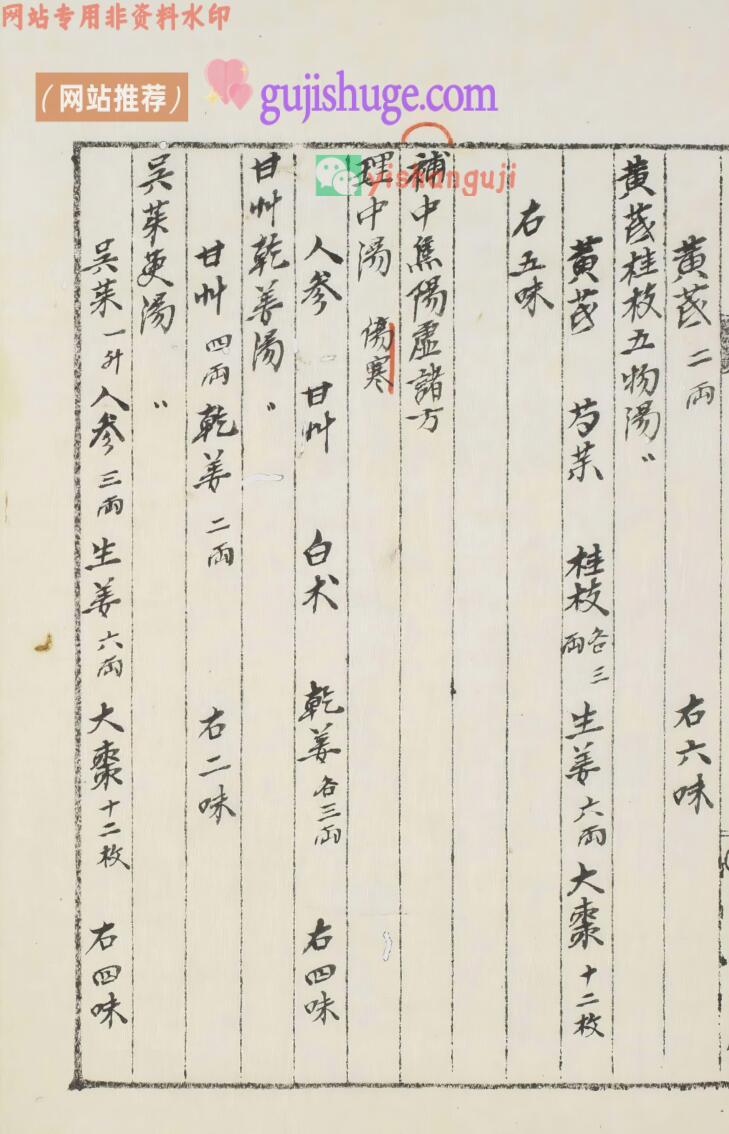 网站专用非资料水印
（网站推荐）
gujishuge.com
yishunguji
黄芪二兩　右六味
黄芪桂枝五物湯〃
黄芪　芍茱　桂枝各三兩　生姜六兩　大棗十二枚
右五味
補中焦陽虛諸方
理中湯　傷寒
人參　甘艸　白术　乾姜各三兩　右四味
甘艸乾姜湯〃
甘艸四兩　乾姜二兩　右二味
吴茱萸湯〃
吴茱一升　人參三兩　生姜六兩　大棗十二枚　右四味